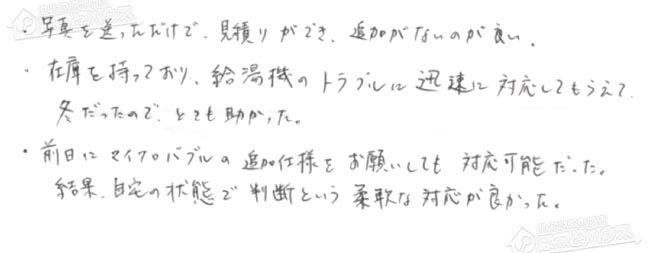 ・写真を送っただけで、見積りができ、追加がないのが良い。
・在庫を持っており、給湯機のトラブルに迅速に対応してもらえて、
冬だったので、とても助かった。
・前日にマイクロバブルの追加仕様をお願いしても対応可能だった。
結果、自宅の状態で判断という柔軟な対応が良かった。